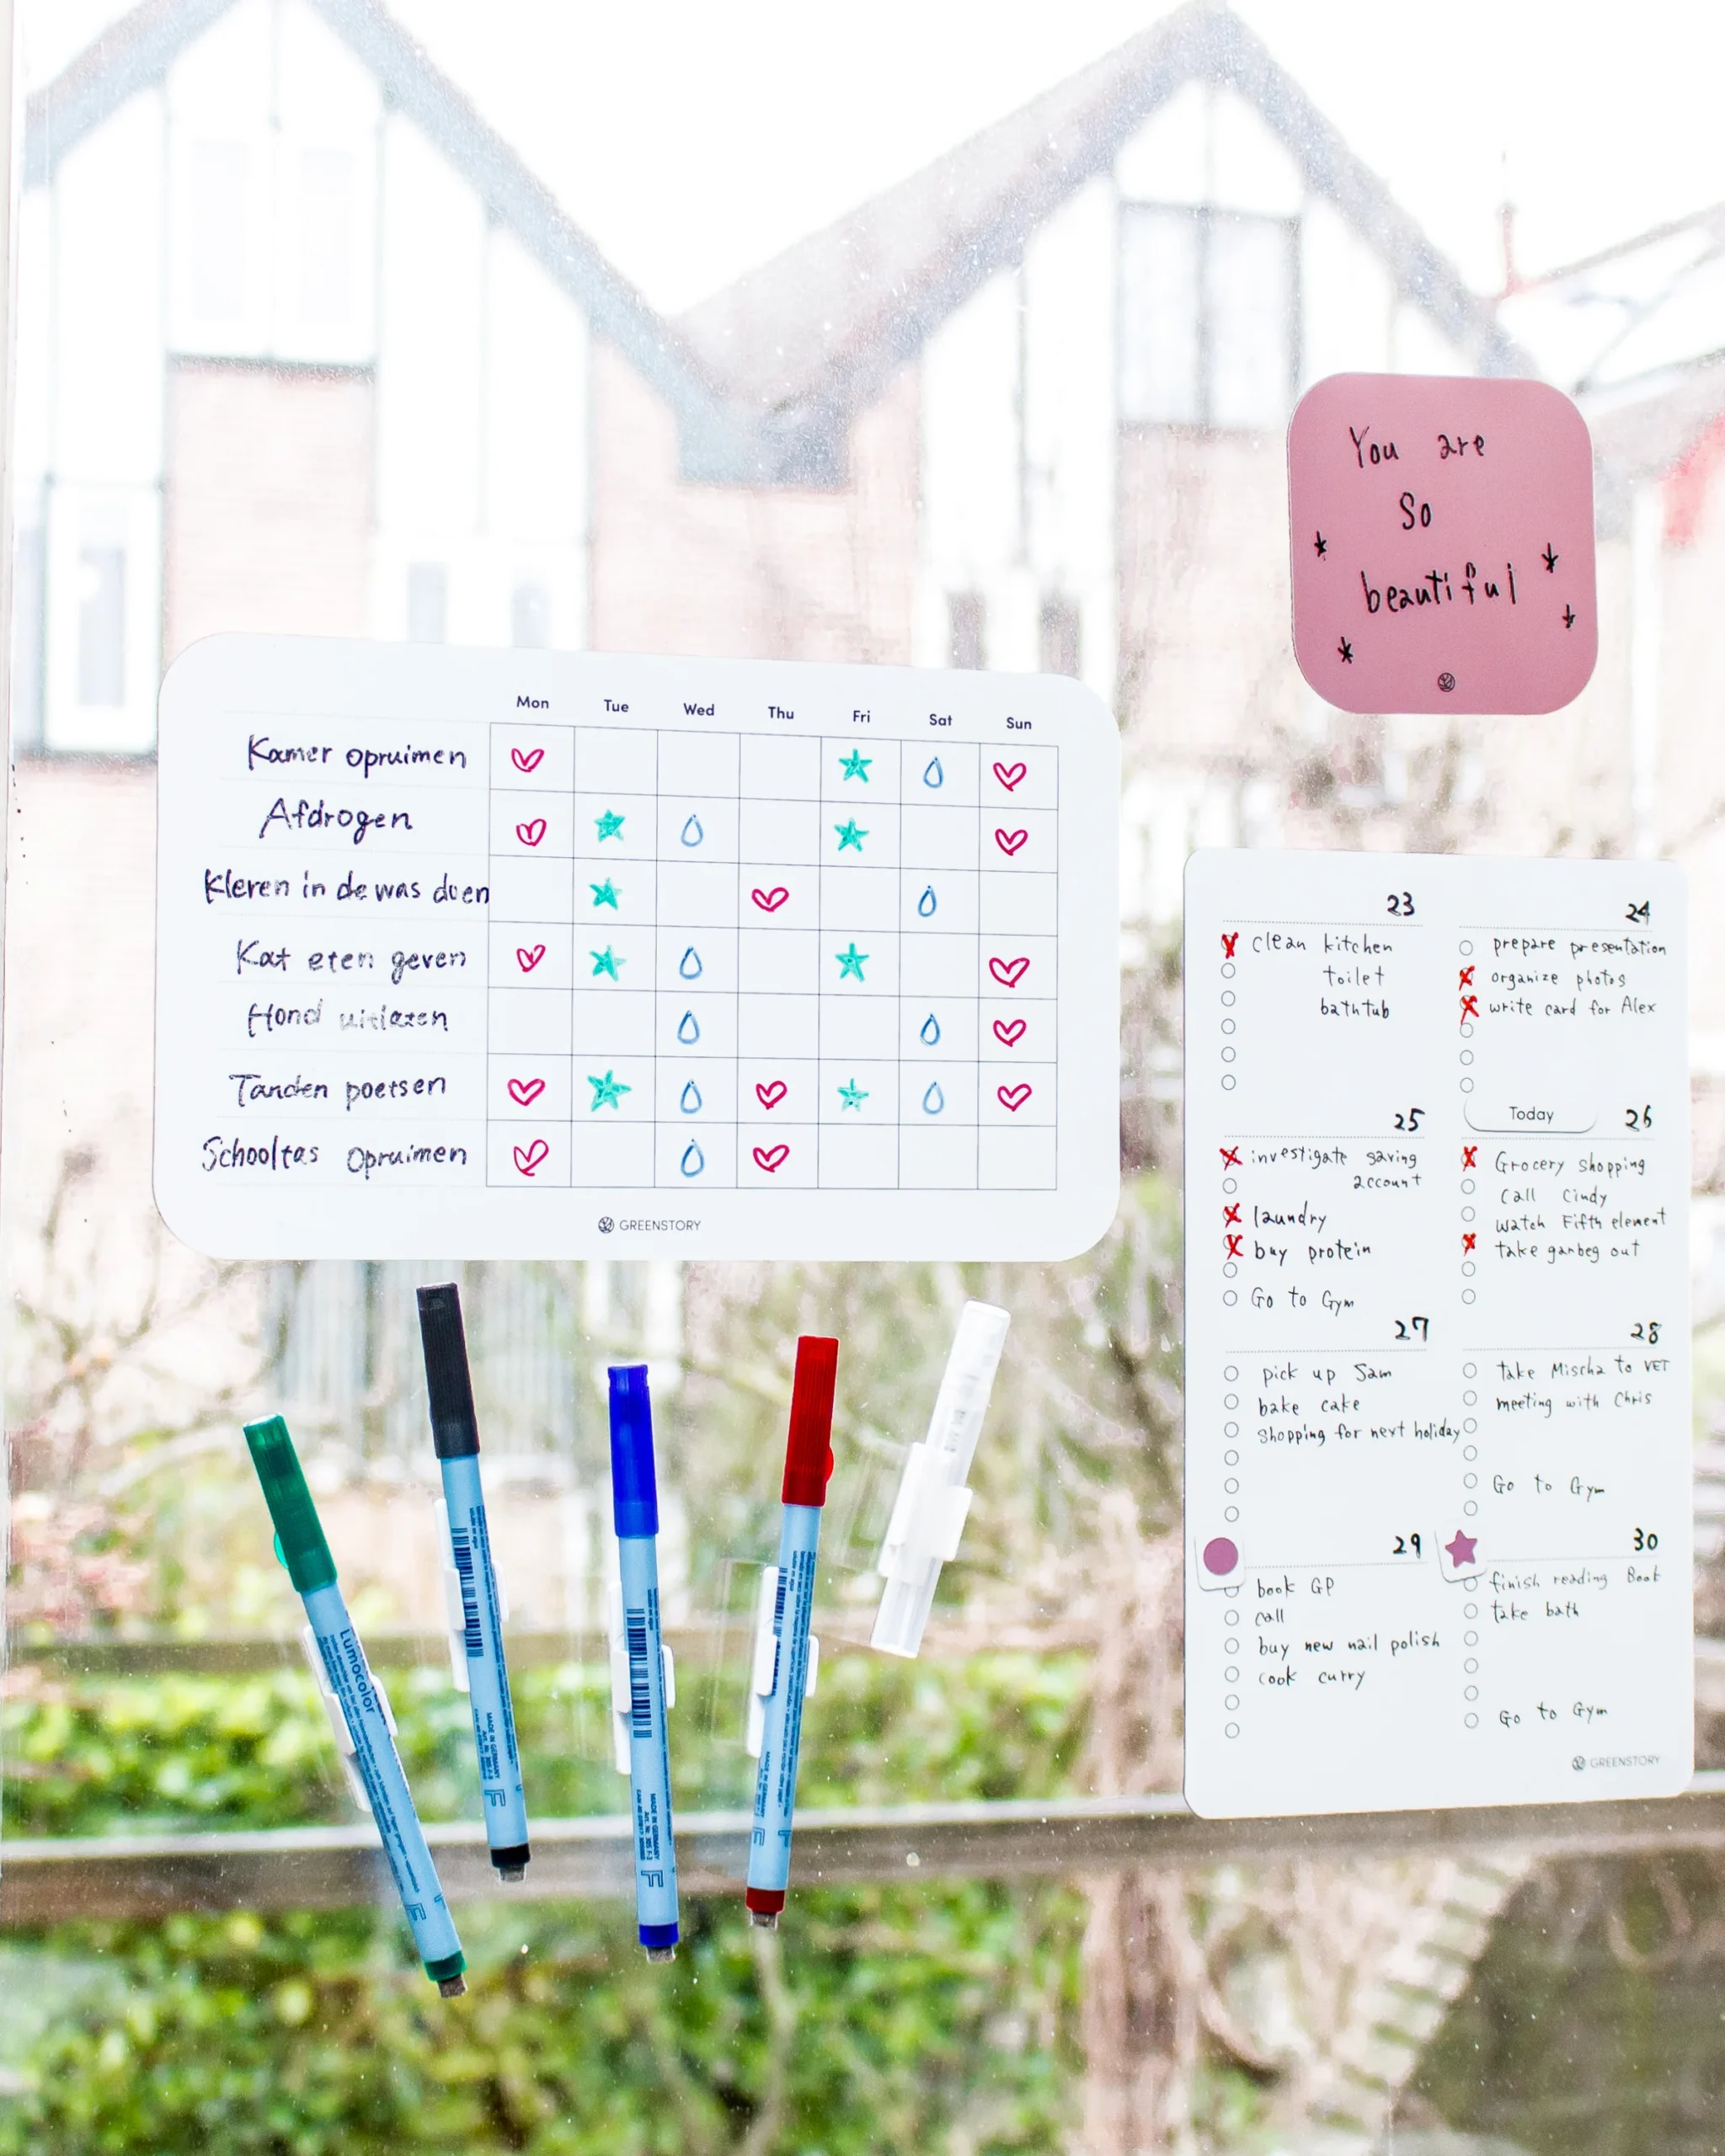 You are
So
beautiful
Mon Tue Wed Thu Fri Sat Sun
Kamer opruimen
Afdrogen
Kleren in de was doen
Kat eten geven
Hond uitlaten
Tanden poetsen
Schooltas opruimen
GREENSTORY
23
clean kitchen
toilet
bathtub
24
prepare presentation
organize photos
write card for Alex
25
investigate saving
account
laundry
buy protein
Go to Gym
Today
26
Grocery shopping
Call Cindy
watch Fifth element
take garbeg out
27
pick up Sam
bake cake
shopping for next holiday
28
take Mischa to VET
meeting with Chris
Go to Gym
29
book GP
call
buy new nail polish
cook curry
30
finish reading Book
take bath
Go to Gym
GREENSTORY
Lumocolor
MADE IN GERMANY
F
MADE IN GERMANY
F
MADE IN GERMANY
F